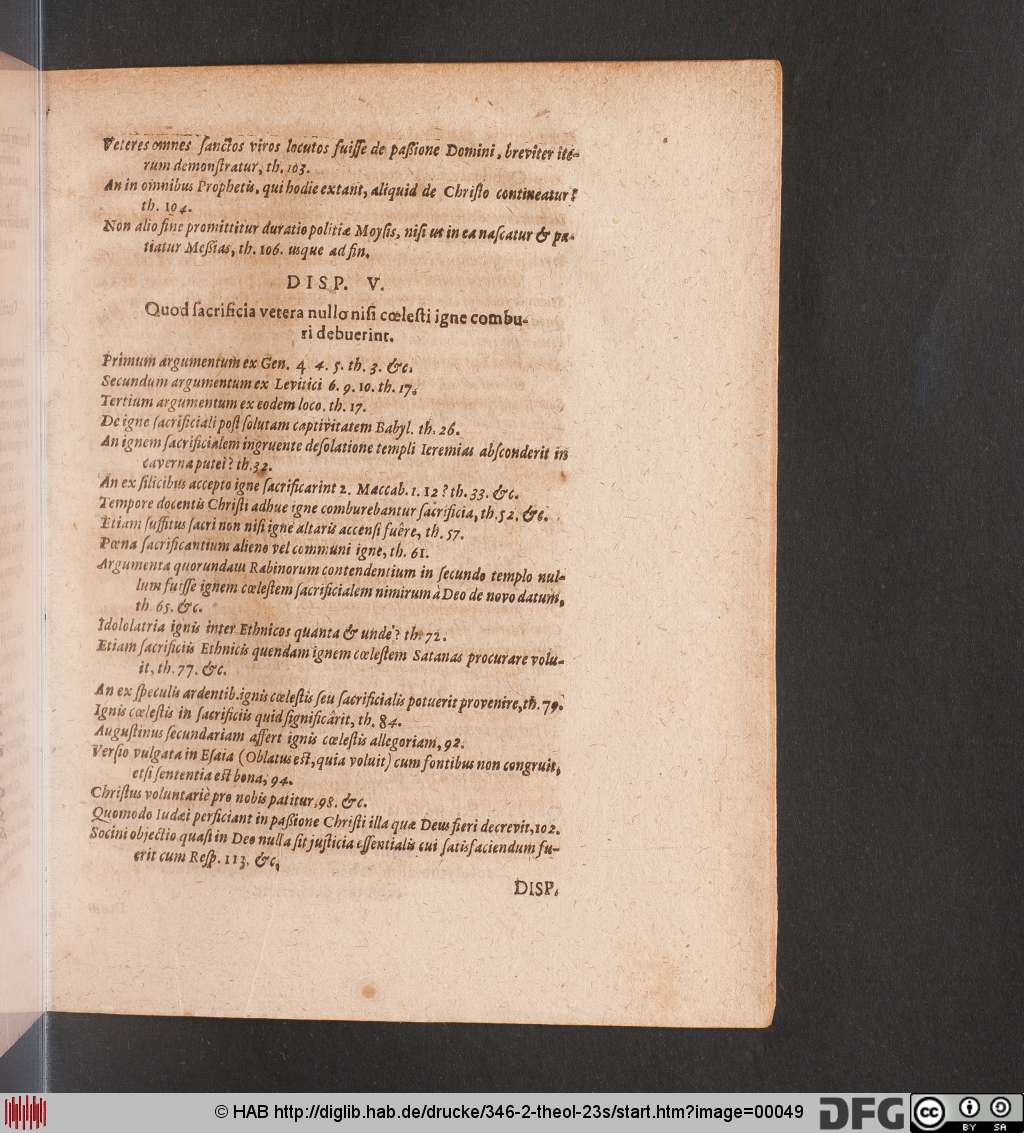 Veteres omnes ſanctos viros locutos fuiſſe de paßione Domini, breviter ite-
rum demonſtratur, th. 103.
An in omnibus Prophetis, qui hodie extant, aliquid de Chriſto contineatur?
th. 104.
Non alio fine promittitur duratio politiæ Moyſis, niſi ut in ea naſcatur & pa-
tiatur Meßias, th. 106. usque ad fin.
DISP. V.
Quod ſacrificia vetera nullo niſi cœleſti igne combu-
ri debuerint.
Primum argumentum ex Gen. 4 4. 5. th. 3. &c.
Secundum argumentum ex Levitici 6. 9. 10. th. 17.
Tertium argumentum ex eodem loco. th. 17.
De igne ſacrificiali poſt ſolutam captivitatem Babyl. th. 26.
An ignem ſacrificialem ingruente deſolatione templi Ieremias abſconderit in
caverna putei? th. 32.
An ex ſilicibus accepto igne ſacrificarint 2. Maccab. 1. 12? th. 33. &c.
Tempore docentis Chriſti adhuc igne comburebantur ſacrificia, th. 52. &c.
Etiam ſuffitus ſacri non niſi igne altaris accenſi fuêre, th. 57.
Pœna ſacrificantium alieno vel communi igne, th. 61.
Argumenta quorundam Rabinorum contendentium in ſecundo templo nul-
lum fuiſſe ignem cœleſtem ſacrificialem nimirum à Deo de novo datum,
th. 65. &c.
Idololatria ignis inter Ethnicos quanta & unde? th. 72.
Etiam ſacrificiis Ethnicis quendam ignem cœleſtem Satanas procurare volu-
it, th. 77. &c.
An ex ſpeculis ardentib. ignis cœleſtis ſeu ſacrificialis potuerit provenire, th. 79.
Ignis cœleſtis in ſacrificiis quid ſignificârit, th. 84.
Auguſtinus ſecundariam affert ignis cœleſtis allegoriam, 92.
Verſio vulgata in Eſaia (Oblatus eſt, quia voluit) cum fontibus non congruit,
etſi ſententia eſt bona, 94.
Chriſtus voluntariè pro nobis patitur, 98. &c.
Quomodo Iudæi perficiant in paßione Chriſti illa quæ Deus fieri decrevit, 102.
Socini objectio quaſi in Deo nulla ſit juſticia eſſentialis cui ſatisfaciendum fu-
erit cum Reſp. 113. &c,
DISP.
© HAB http://diglib.hab.de/drucke/346-2-theol-23s/start.htm?image=00049
DFG
cc
BY SA